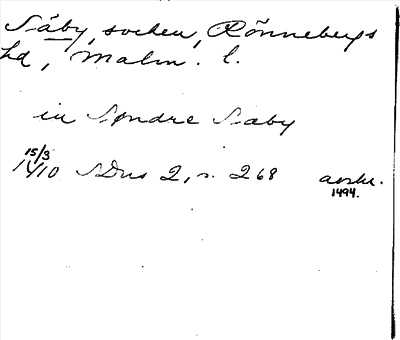 Säby, socken, Rönnebergs
hd, Malm. l.
in Søndre Sæby
15/3
1410 SDns 2, s. 268 avskr.
1494.